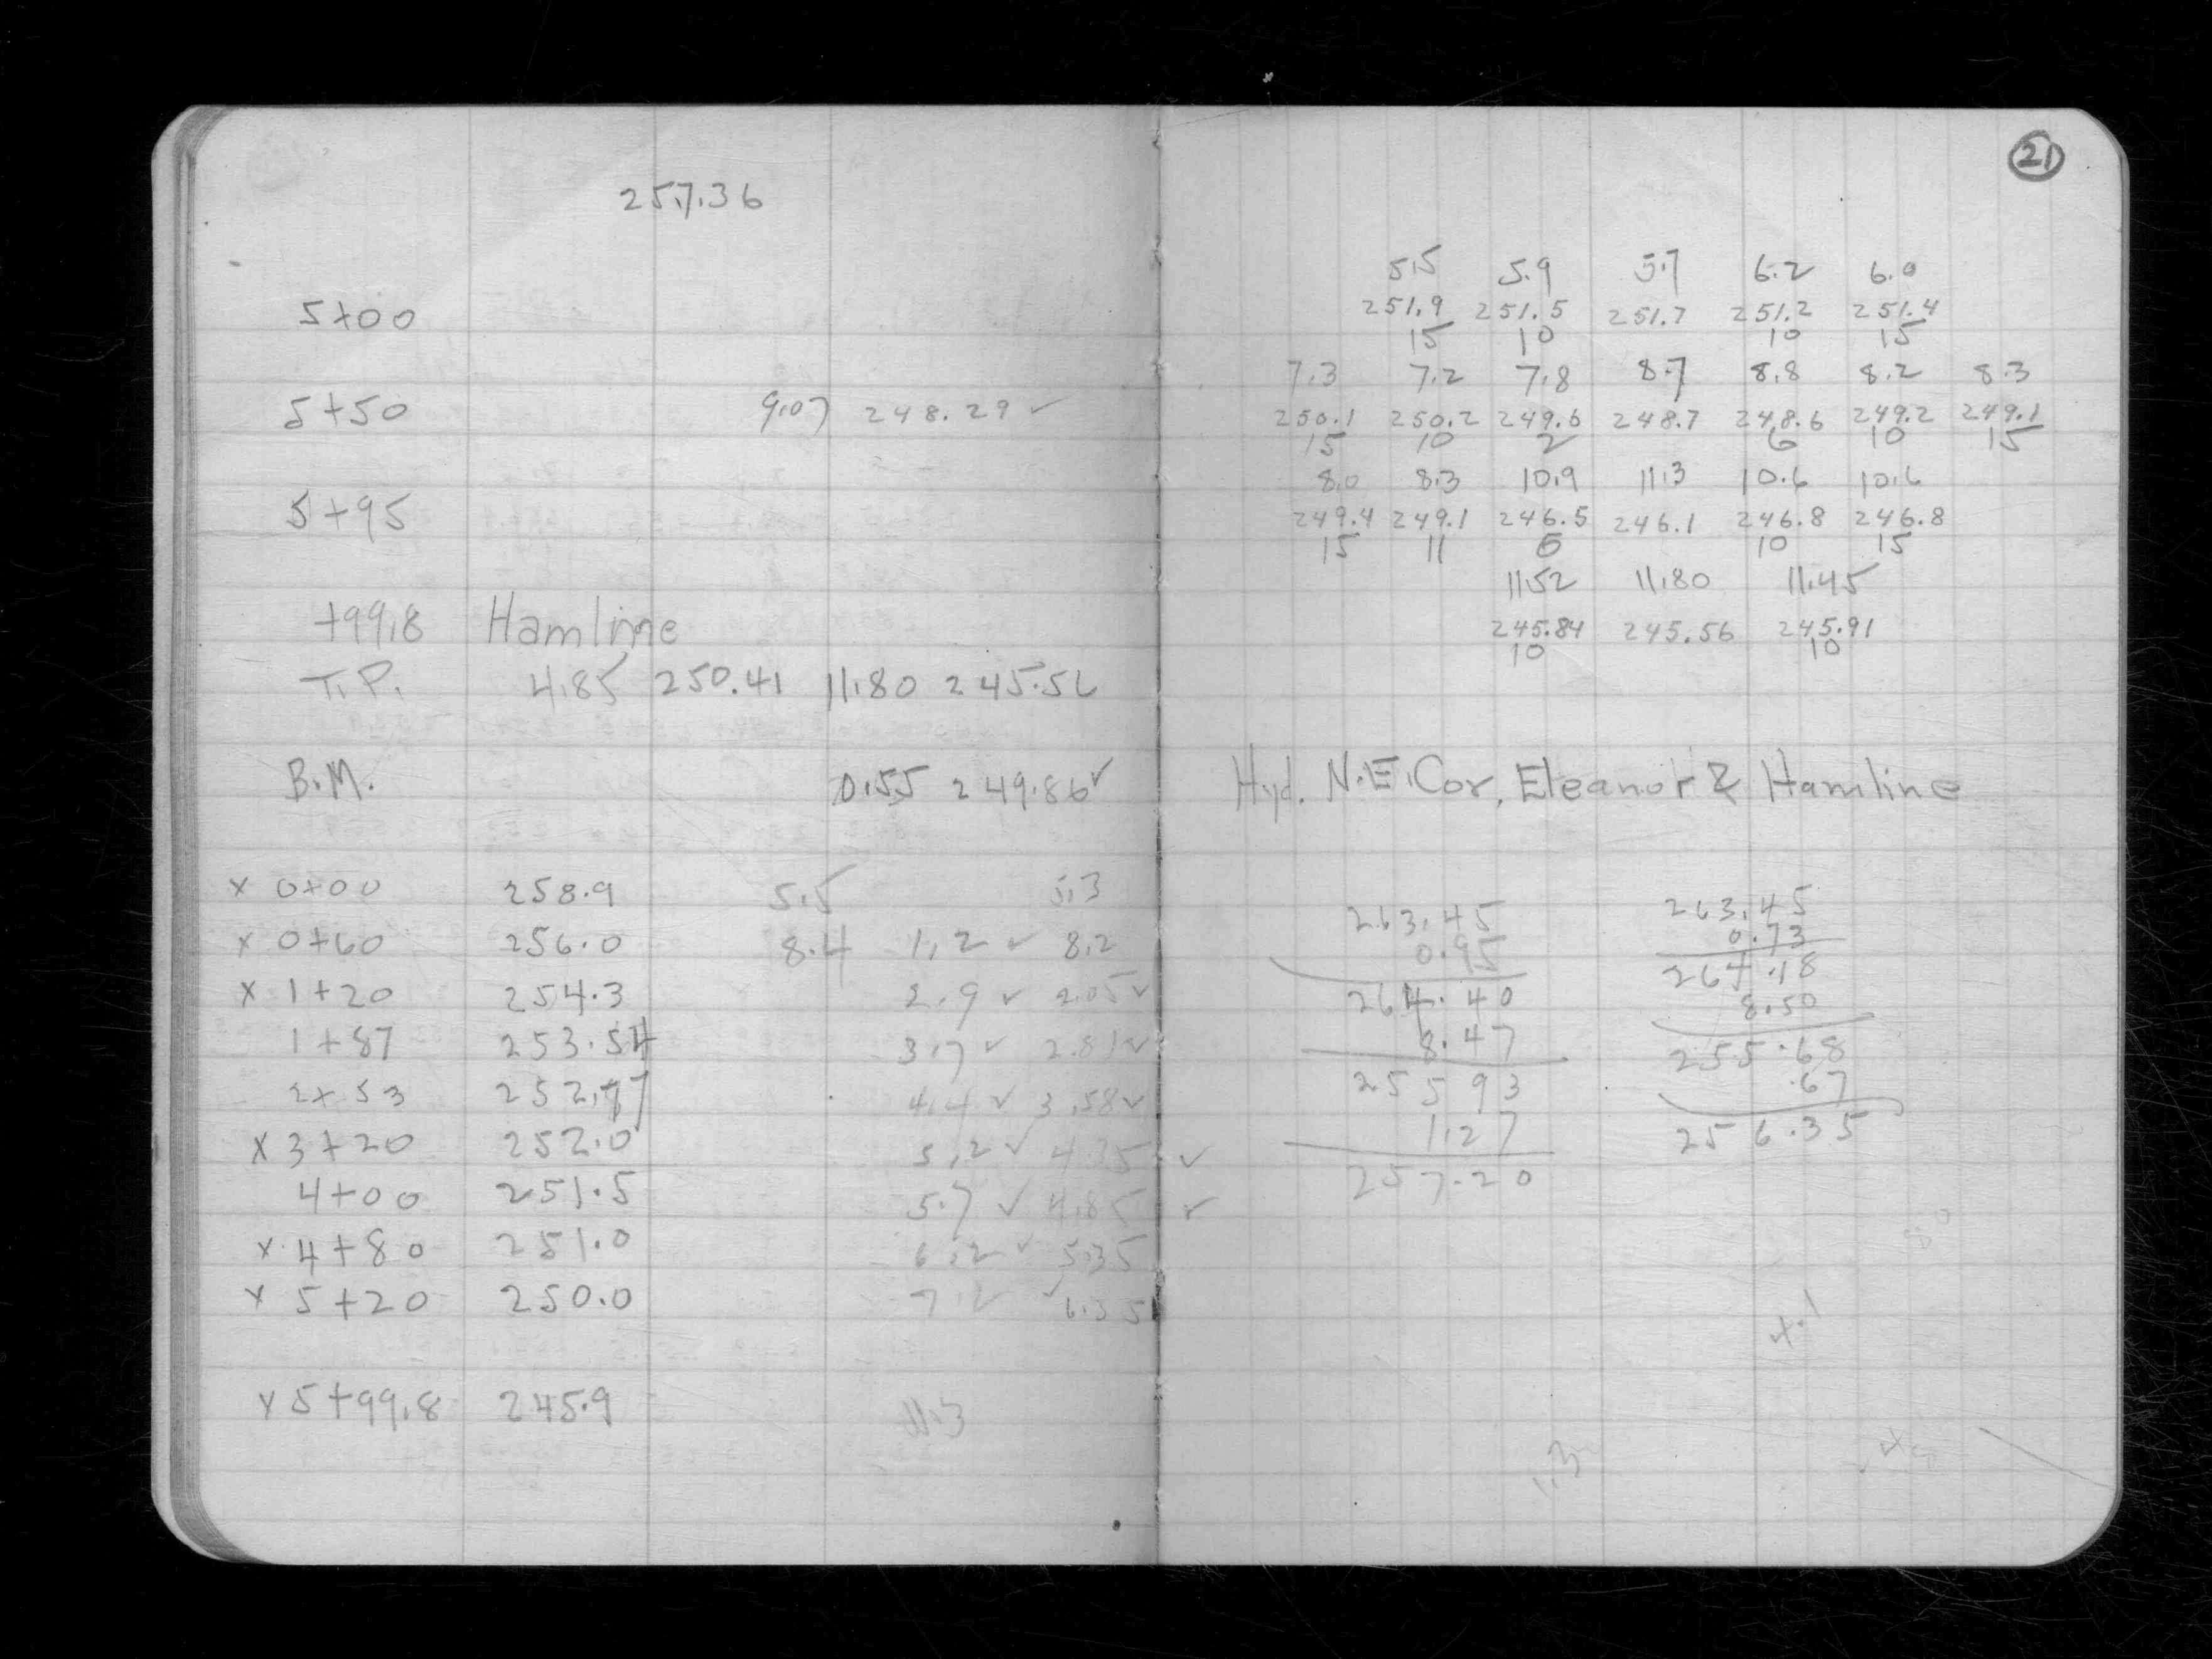 21
257.36
5.5 5.9 5.7 6.2 6.0
5+00 251.9 251.5 251.7 251.2 251.4
15 10 10 15
7.3 7.2 7.8 8.7 8.8 8.2 8.3
5+50 9.07 248.29 ✓ 250.1 250.2 249.6 248.7 248.6 249.2 249.1
15 10 2 6 10 15
8.0 8.3 10.9 11.3 10.6 10.6
5+95 249.4 249.1 246.5 246.1 246.8 246.8
15 11 5 10 15
11.52 11.80 11.45
+99.8 Hamline 245.84 245.56 245.91
10 10
T.P. 4.85 250.41 11.80 245.56
B.M. 0.55 249.86 ✓ Hyd. N.E. Cor. Eleanor & Hamline
x 0+00 258.9 5.5 5.3
x 0+60 256.0 8.4 1.2 ✓ 8.2
x 1+20 254.3 2.9 ✓ 2.05 ✓
1+87 253.54 3.7 ✓ 2.81 ✓
2+53 252.77 4.4 ✓ 3.58 ✓
x 3+20 252.0 5.2 ✓ 4.35 ✓
4+00 251.5 5.7 ✓ 4.85 ✓
x 4+80 251.0 6.2 ✓ 5.35
x 5+20 250.0 7.2 ✓ 6.35
x 5+99.8 245.9 11.3
263.45
0.95
264.40
8.47
255 93
1.27
257.20
263.45
0.73
264.18
8.50
255.68
.67
256.35
4.1
1.3